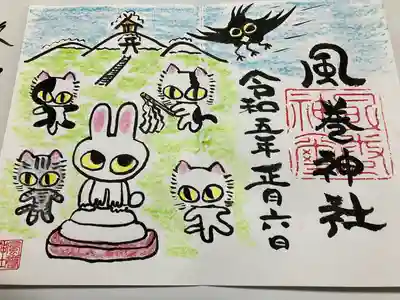 風巻神社
令和五年正月六日